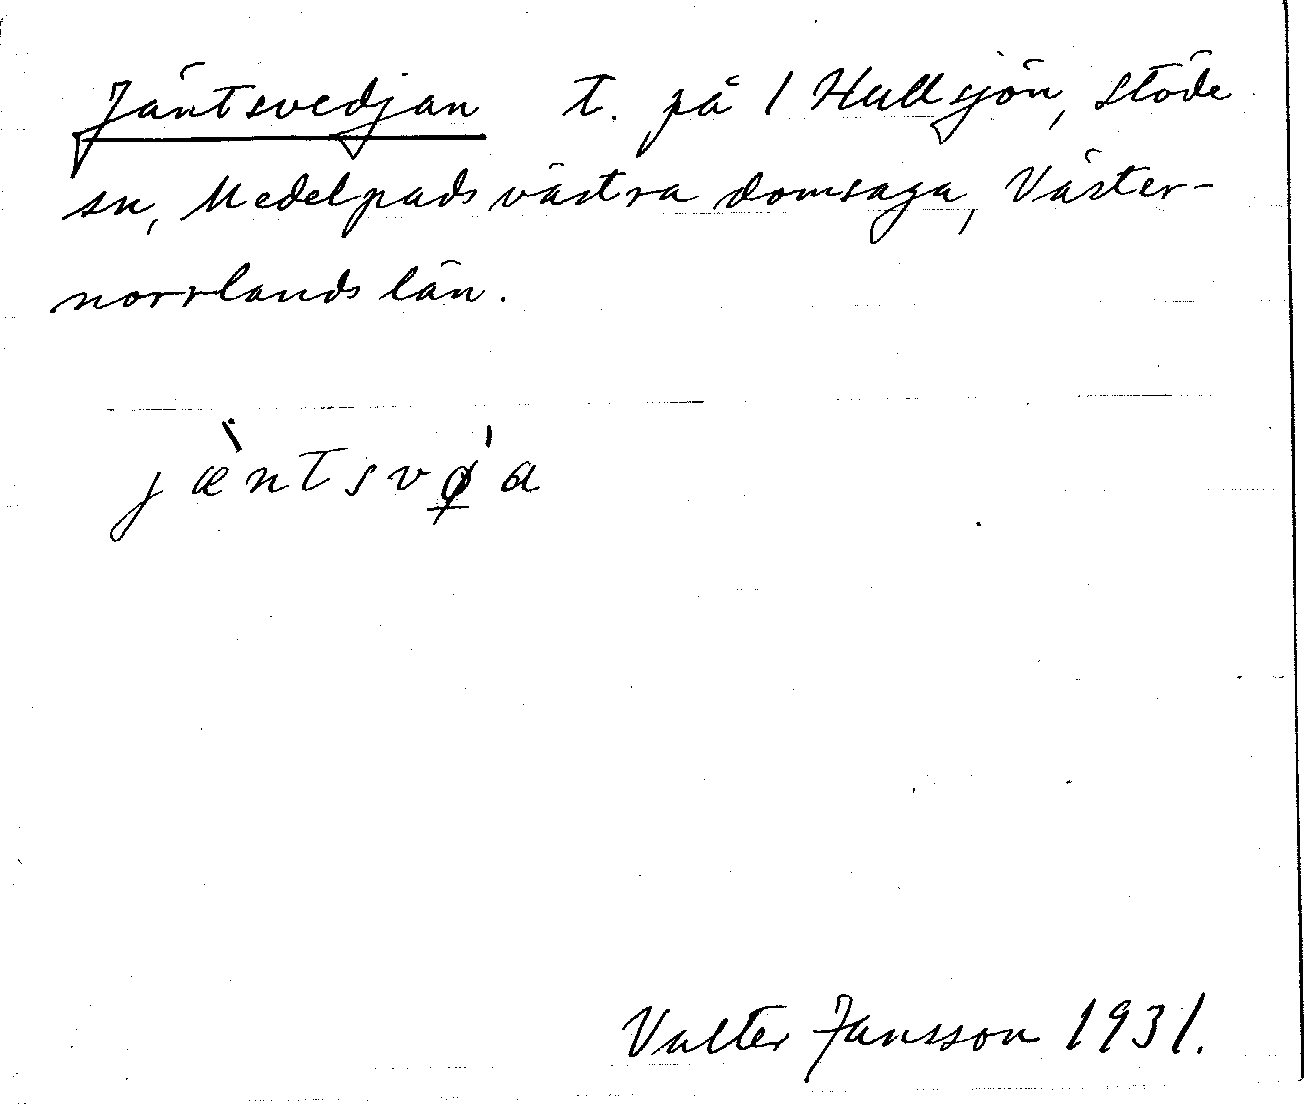 Jäntsvedjan t. på 1 Hullsjön, Stöde
sn, Medelpads västra domsaga, Väster-
norrlands län.
jæ̀ntsvǿ̱a
Valter Jansson 1931.